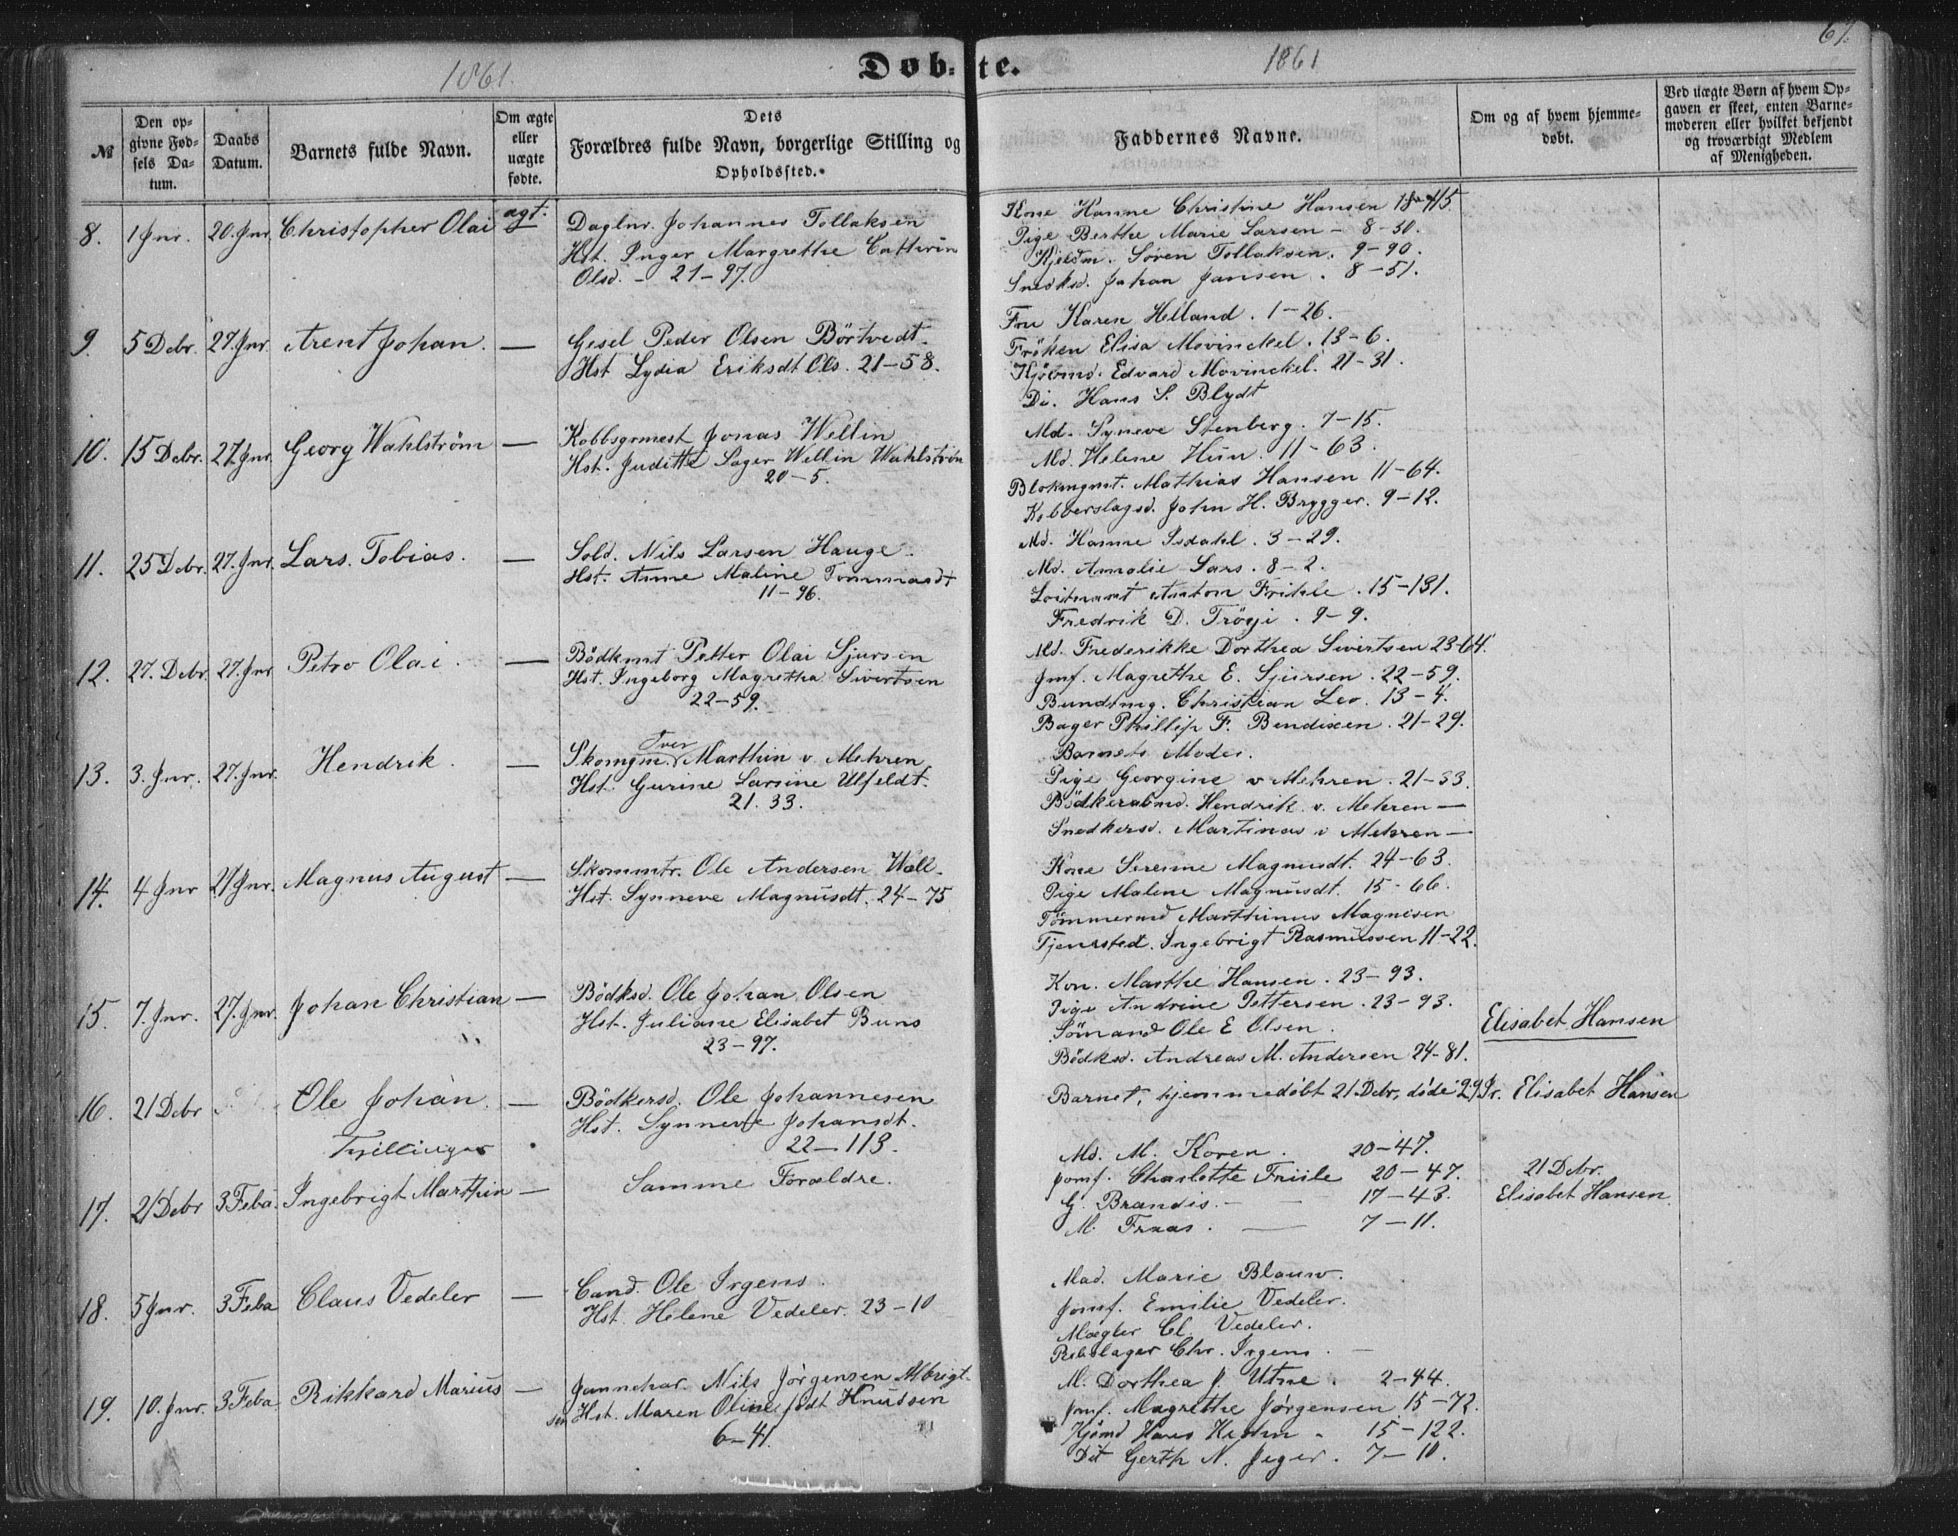 1861.
Døb-te.
1861
67.
№
Den opgivne Fødsels Datum.
Daabs Datum.
Barnets fulde Navn.
Om ægte eller uægte fødte.
Dets Forældres fulde Navn, borgerlige Stilling og Opholdssted.
Faddernes Navne.
Om og af hvem hjemmedøbt.
Ved uægte Børn af hvem Opgaven er skeet, enten Barnemoderen eller hvilket bekjendt og troværdigt Medlem af Menigheden.
8. 1 Jnr. 20. Jnr. Christopher Olai ægt.
Daglnr. Johannes Tollaksen
Hst. Inger Margrethe Cathrin
Olsd. - 21-97.
Kone Hanne Christine Hansen
Pige Berthe Marie Larsen - 8-50.
Søren Tollaksen. 9-90.
Snedksd. Johan Jansen. 8-51.
9. 5 Debr. 27. Jnr. Arent Johan. —
Gesel Peder Olsen Börtvedt.
Hst Lydia Eriksdt Ols. 21-58.
Fru Karen Helland. 1-26.
Fröken Elisa Movinckel. 13-6.
Kjöbmd. Edvard Movinckel. 21-31.
Do. Hans S. Blydt
10. 15 Debr. 27. Jnr. Georg Wahlström —
Kobbsgrmest Jonas Wellin
Hst. Juditte Sager Wellin Wahlström
20-5.
Md. Syneve Stenberg. 7-15.
Md. Helene Hun. 11-63.
Blokmgmt. Mathias Hansen 11-64.
Kobberslagsd. John H. Brygger. 9-12.
11. 25 Debr. 27. Jnr. Lars Tobias. —
Sold. Nils Larsen Hauge.
Hst. Anne Maline Tommasdt
11-96.
Md. Hanne Isdahl. 3-29.
Md. Amalie Sars. 8-2.
Loitnant Anton Frihle. 15-131.
Fredrik D. Tröyi. 9-9.
12. 27. Debr. 27. Jnr Petro Olai. —
Bödkmt Petter Olai Sjursen
Hst. Ingeborg Magretha Sivertsen
22-59.
Md. Frederikke Dorthea Sivertsen 23-64.
Jmf. Magrethe E. Sjursen. 22-59.
Bundtmg. Christian Leo. 13-4.
Bager Phillip F. Bendixen. 21-29.
13. 3. Jnr. 27. Jnr. Hendrik. —
Skomgm. Iver Marthin v. Mehren
Hst. Gurine Larsine Ulfeldt.
21. 33.
Barnets Moder.
Pige Georgine v Mehren. 21-33.
Hendrik v. Mehren —
Snedkersd. Martinus v Mehren —
14. 4 Jnr 27. Jnr. Magnus August —
Skommtr. Ole Andersen Wall.
Hst. Synneve Magnusdt. 24-75
Kone Serenne Magnusdt. 24-63.
Pige Malene Magnusdt. 15-66.
Tömmermd Marthinus Magnisen
Tjenested. Ingebrigt Rasmussen 11-22.
15. 7. Jnr. 27. Jnr. Johan Christian —
Bödksd. Ole Johan Olsen
Hst. Juliane Elisabet Buns
23-97.
Kon. Marthe Hansen. 23-93.
Pige Andrine Pettersen. 23-93.
Sömand Ole E Olsen.
Bödksd. Andreas M. Andersen 24-81.
Elisabet Hansen
16. 21 Debr Ole Johan. —
Bödkersd. Ole Johannesen
Hst. Synneve Johansdt.
22-113.
Barnet, hjemmedöbt 21 Debr, döde 29 Jr. Elisabet Hansen
Tvillinger
17. 21 Debr 3 Feba Ingebrigt Marthin —
Samme Forældre.
Md. M. Koren. 20-47.
Jomf. Charlotte Friile 20-47.
G. Brandis. — 17-43.
M. Fraas. — 7-11.
21 Debr.
Elisabet Hansen
18. 5 Jnr. 3 Feba Claus Vedeler —
Cand. Ole Irgens.
Hst. Helene Vedeler. 23-10
Mad. Marie Blauw.
Jomf. Emilie Vedeler.
Mægler Cl. Vedeler.
Rebslager Chr. Irgens. —
19. 10. Jnr. 3 Feba Rikkard Marius —
Nils Jørgensen Albrigt-
sen Hst. Maren Oline født Knutsen
6-41.
M. Dorthea J. Utne. 2-44.
Jomf. Magrethe Jørgensen 15-72.
Kjömd Hans Hejtm - 15-122.
Dit Gerth N. Jeger. 7-10.